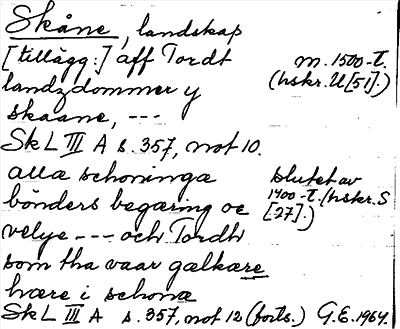 Skåne, landskap
[tillägg:] aff Tordt m. 1500-t.
landzdommer y (hskr. U[51].)
skaane, ---
SkL III A s. 357, not 10.
alla schoninga slutet av
bönders begæring oc 1400-t. (hskr. S
velye --- och Tordh [27].)
som tha vaar gælkære
hære i schona
SkL III A s. 357, not 12 (forts.) G.E. 1964.